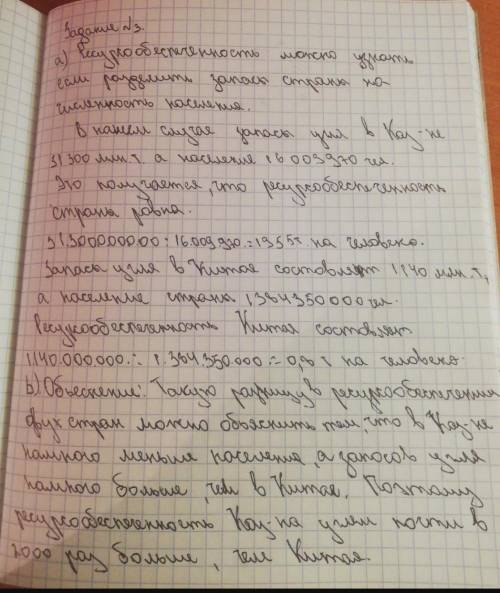 Задание №3.
а) Ресурсообеспеченность можно узнать
если разделить запасы страны на
численность населения.
В нашем случае запасы угля в Каз-не
31300 млн.т. а население 16 009970 чел.
Это получается, что ресурсообеспеченность
страны равна.
31300000000 : 16.009970.=1955т на человека.
Запасы угля в Китае составляют 1140 млн.т,
а население страны 1384350000 чел.
Ресурсообеспеченность Китая составляет
1140.000.000.: 1.384.350.000.= 0,8 т на человека.
b) Объяснение: Такую разницу в ресурсообеспечении
двух стран можно объяснить тем, что в Каз-не
намного меньше населения, а запасов угля
намного больше, чем в Китае. Поэтому
ресурсообеспеченность Каз-на углем почти в
2000 раз больше, чем Китая.